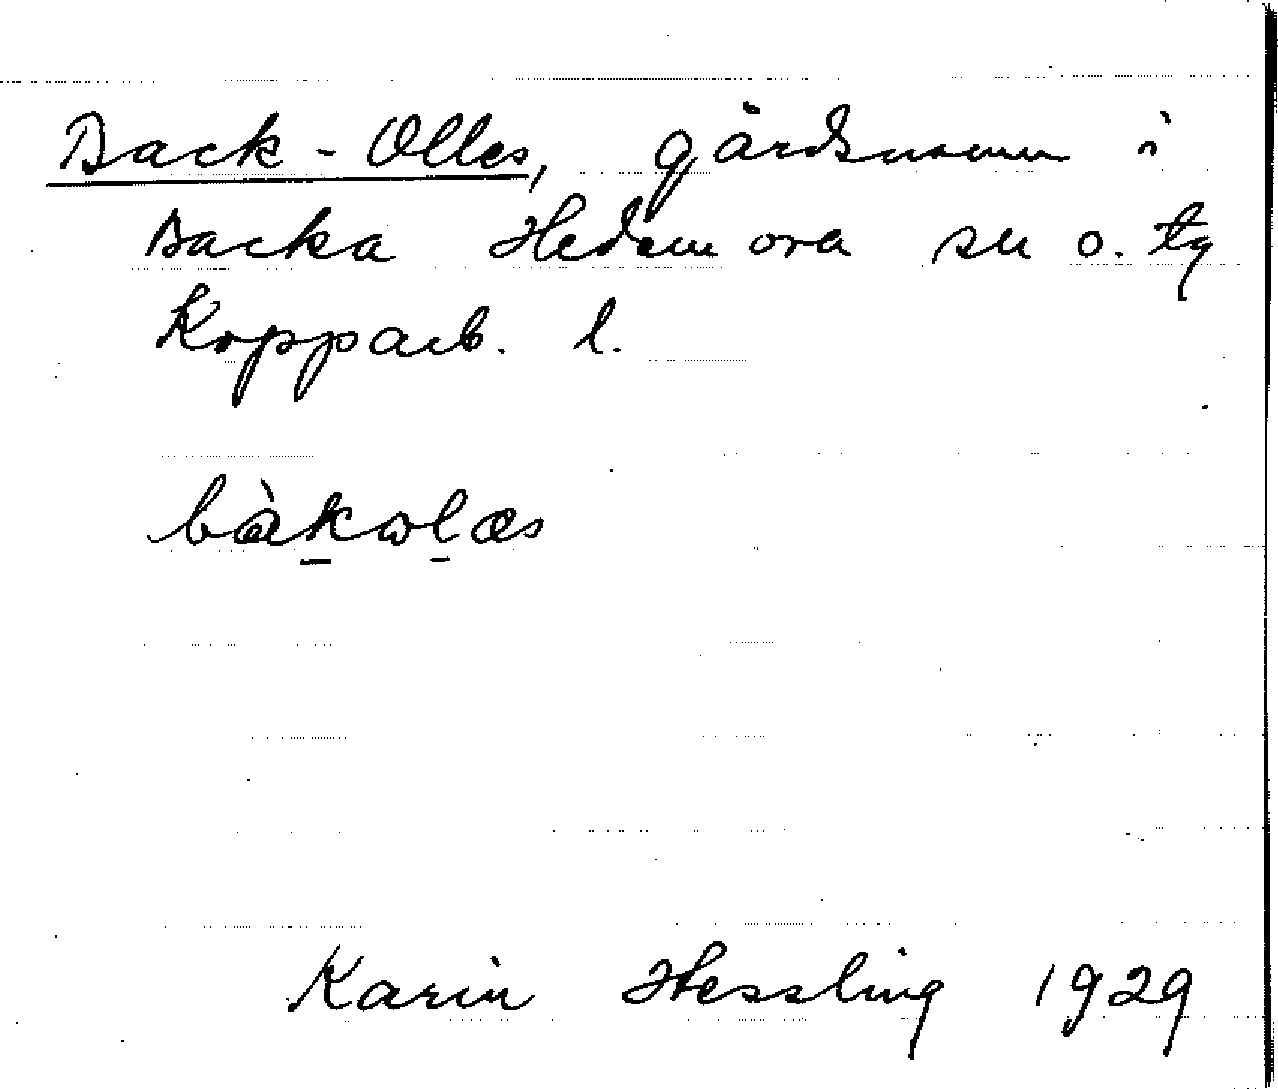 Back-Olles, gårdsnamn i
Backa Hedemora sn o. tg
Kopparb. l.
bàkωlæs
Karin Hessling 1929